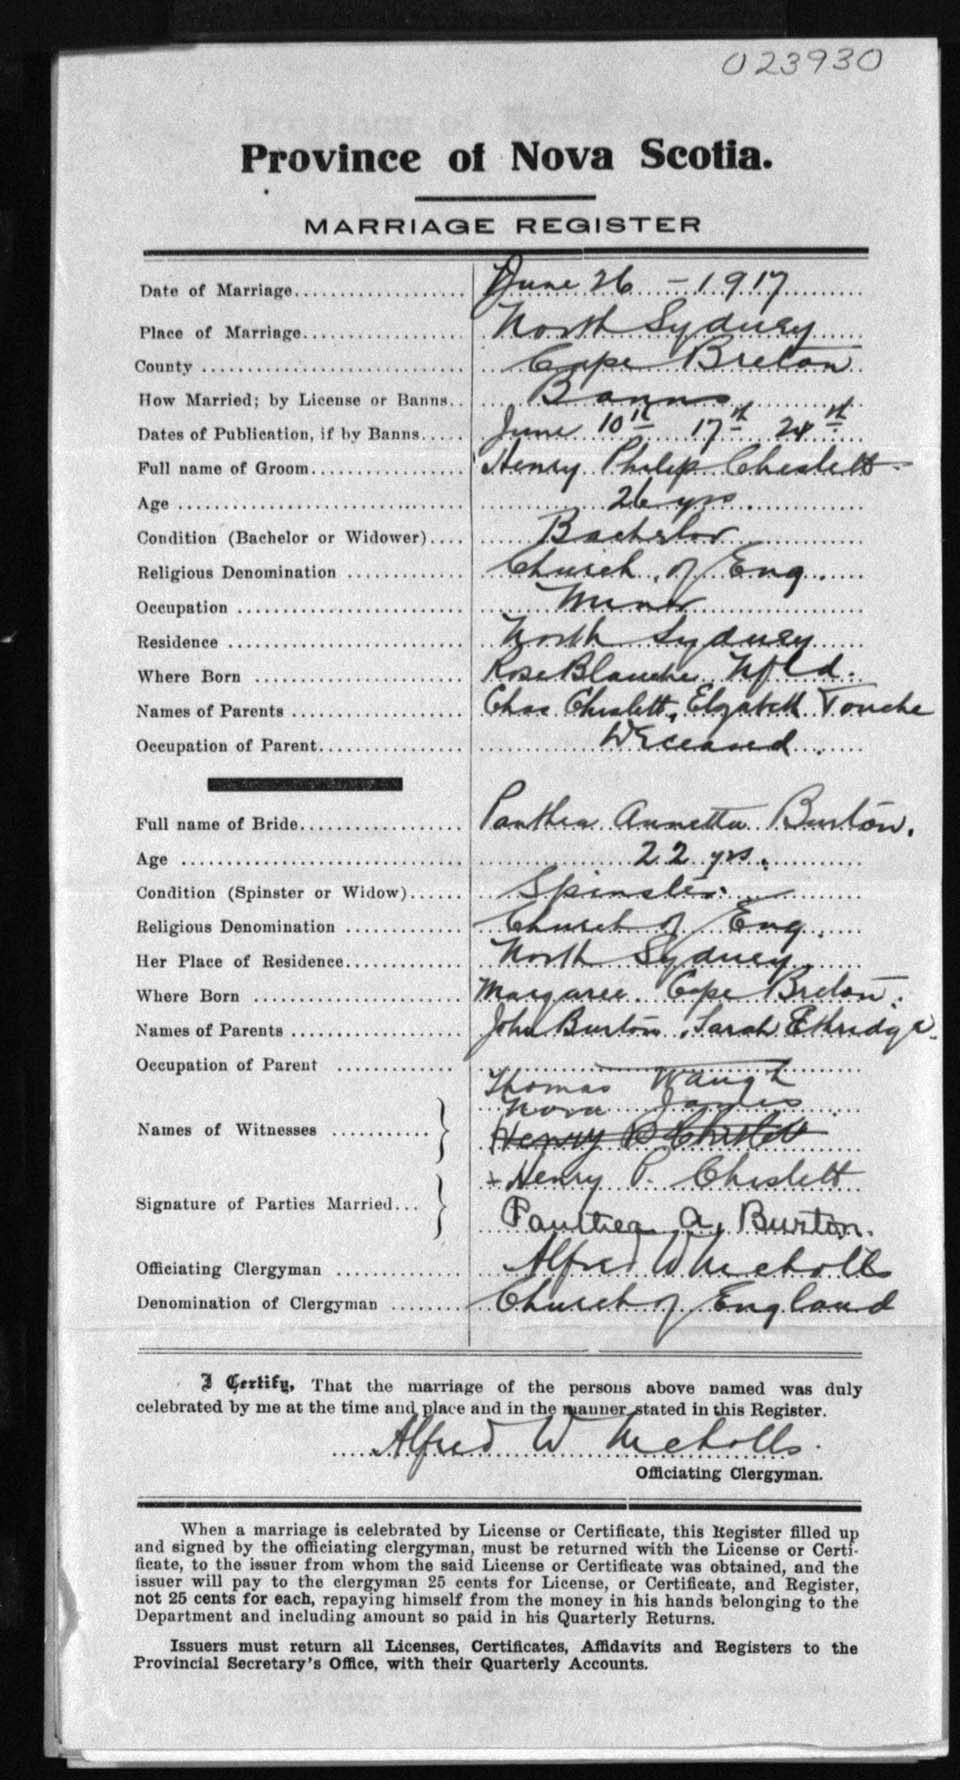 023930
Province of Nova Scotia.
MARRIAGE REGISTER
Date of Marriage June 26 - 1917
Place of Marriage North Sydney
County Cape Breton
How Married; by License or Banns Banns
Dates of Publication, if by Banns June 10th 17th 24th
Full name of Groom Henry Philip Cheslett
Age 26 yrs
Condition (Bachelor or Widower) Bachelor
Religious Denomination Church of Eng.
Occupation Miner
Residence North Sydney
Where Born Rose Blanche Nfld.
Names of Parents Chas Cheslett, Elizabeth Touche
Occupation of Parent Deceased.
Full name of Bride Panthea Annetta Burton.
Age 22 yrs.
Condition (Spinster or Widow) Spinster.
Religious Denomination Church of Eng.
Her Place of Residence North Sydney.
Where Born Margaree. Cape Breton.
Names of Parents John Burton, Sarah Ethridge
Occupation of Parent
Thomas Waugh
Nora
Names of Witnesses Henry Chislett
+ Henry P. Cheslett
Signature of Parties Married
Panthea A. Burton.
Officiating Clergyman Alfred W Nicholls
Denomination of Clergyman Church of England
I Certify, That the marriage of the persons above named was duly
celebrated by me at the time and place and in the manner stated in this Register.
Alfred W Nicholls.
Officiating Clergyman.
When a marriage is celebrated by License or Certificate, this Register filled up
and signed by the officiating clergyman, must be returned with the License or Certi-
ficate, to the issuer from whom the said License or Certificate was obtained, and the
issuer will pay to the clergyman 25 cents for License, or Certificate, and Register,
not 25 cents for each, repaying himself from the money in his hands belonging to the
Department and including amount so paid in his Quarterly Returns.
Issuers must return all Licenses, Certificates, Affidavits and Registers to the
Provincial Secretary's Office, with their Quarterly Accounts.